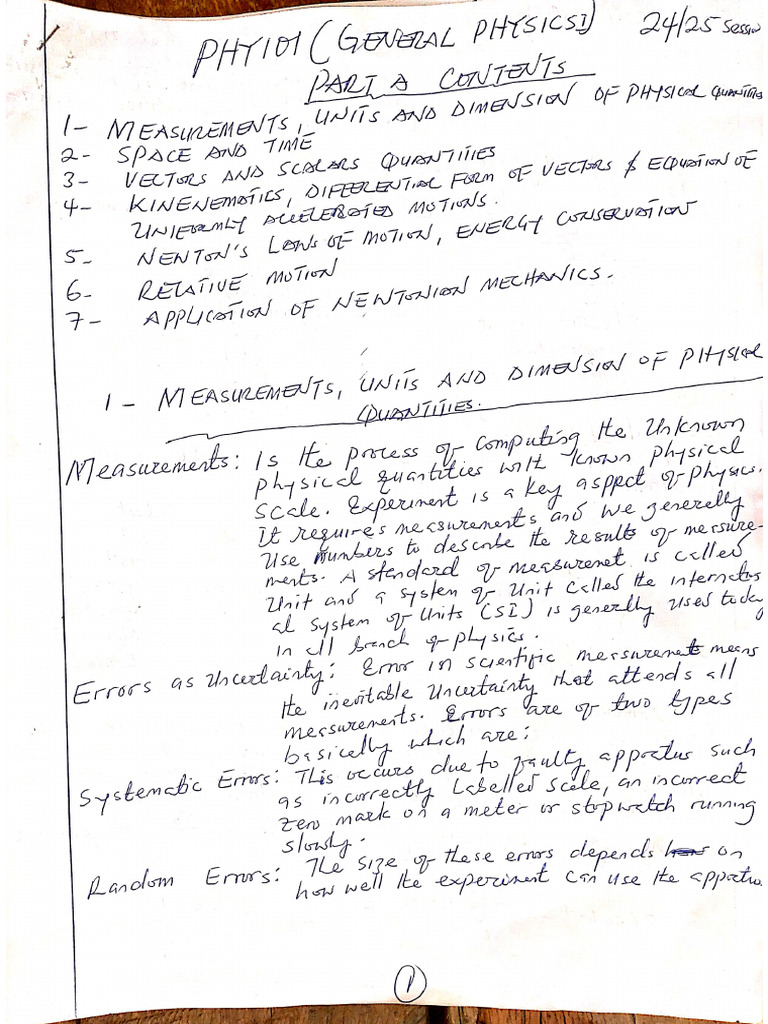 PHY101 (GENERAL PHYSICS I) 24/25 Session
PART A CONTENTS
1- MEASUREMENTS, UNITS AND DIMENSION OF PHYSICAL QUANTITIES
2- SPACE AND TIME
3- VECTORS AND SCALARS QUANTITIES
4- KINENEMATICS, DIFFERENTIAL FORM OF VECTORS & EQUATION OF
UNIFORMLY ACCELERATED MOTIONS.
5- NEWTON'S LAWS OF MOTION, ENERGY CONSERVATION
6- RELATIVE MOTION
7- APPLICATION OF NEWTONION MECHANICS.
1- MEASUREMENTS, UNITS AND DIMENSION OF PHYSICAL
QUANTITIES.
Measurements: Is the process of computing the Unknown
physical quantities with known physical
scale. Experiment is a key asppct of physics.
It requires measurements and we generally
Use numbers to describe the results of measure-
ments. A standard of measuremet is called
Unit and a system of Unit called the internation
al system of Units (SI) is generally used today
in all branch of physics.
Errors as Uncertainty: Error in scientific measurement means
the inevitable Uncertainty that attends all
measurements. Errors are of two types
basically which are:
Systematic Errors: This occurs due to faulty apparatus such
as incorrectly Labelled scale, an incorrect
zero mark on a meter or stopwatch running
slowly.
Random Errors: The size of these errors depends on
how well the experiment can use the apparatus
1